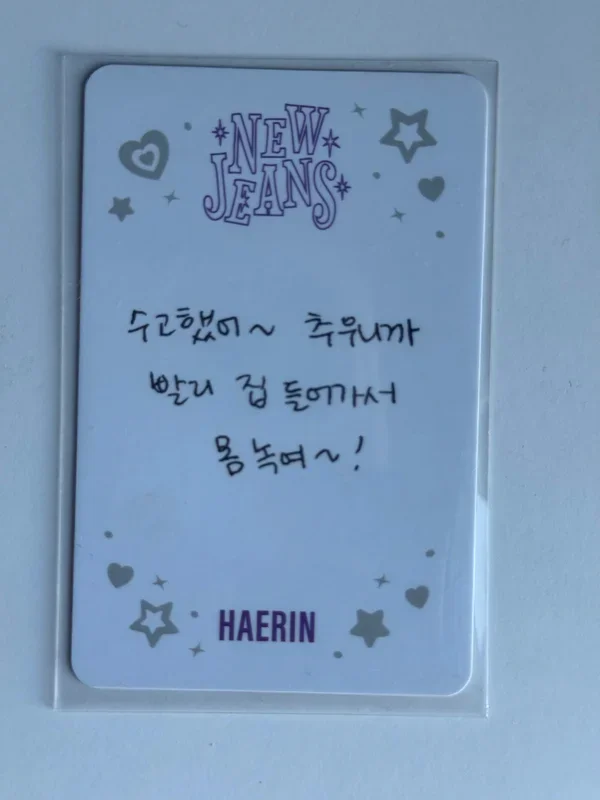 NEW
JEANS
수고했어~ 추우니까
빨리 집 들어가서
몸 녹여~!
HAERIN